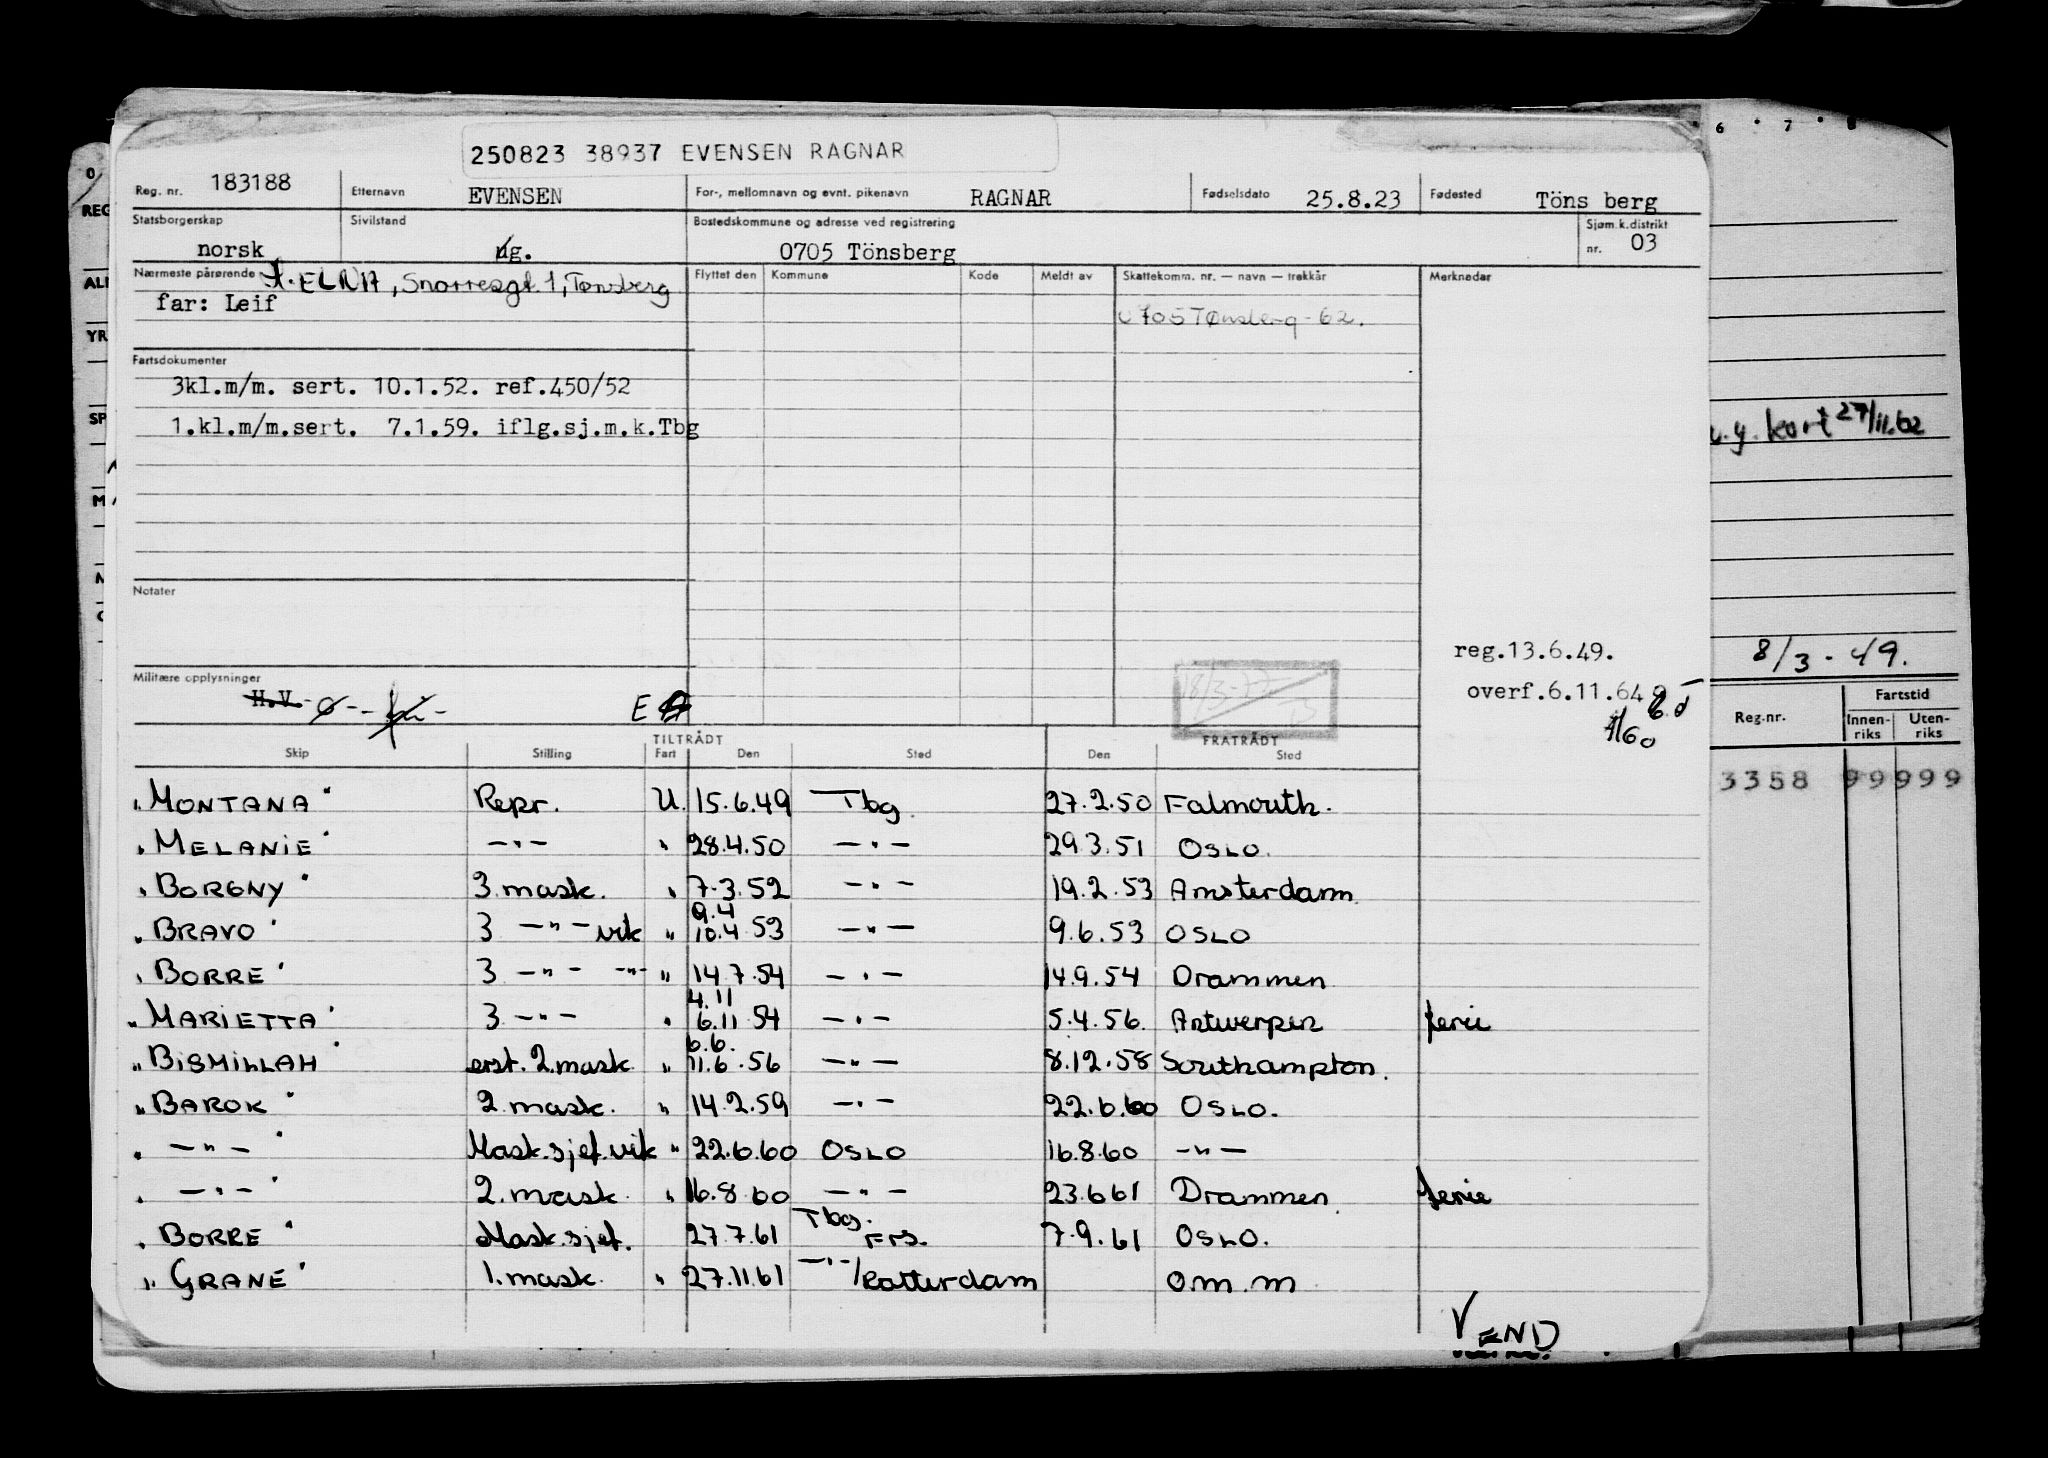 250823 38937 EVENSEN RAGNAR
Reg. nr. 183188 Etternavn EVENSEN For-, mellomnavn og evnt. pikenavn RAGNAR Fødselsdato 25.8.23 Fødested Töns berg
Statsborgerskap norsk Sivilstand g. Bostedskommune og adresse ved registrering 0705 Tönsberg Sjøm.k.distrikt nr. 03
Nærmeste pårørende ELNA, Snorresgt. 1, Tønsberg Flyttet den Kommune Kode Meldt av Skattekomm. nr. — navn — trekkår Merknader
far: Leif
0705 Tønsberg - 62.
Fartsdokumenter
3kl.m/m. sert. 10.1.52. ref.450/52
1.kl.m/m.sert. 7.1.59. iflg.sj.m.k.Tbg
u.g. kort 27/11.62
Notater
reg.13.6.49.
8/3 - 49.
Militære opplysninger
H.V.
E
18/3-77
overf.6.11.64
1/60
Reg.nr. Fartstid
Innen-riks Uten-riks
3358 99999
TILTRÅDT FRATRÅDT
Skip Stilling Fart Den Sted Den Sted
"MONTANA" Repr. U. 15.6.49 Tbg. 27.2.50 Falmouth.
"MELANIE" — " — " 28.4.50 — " — 29.3.51 OSLO.
"BORGNY" 3. mask. " 7.3.52 — " — 19.2.53 Amsterdam
"BRAVO" 3 — " — vik " 9.4 10.4 53 — " — 9.6.53 OSLO
"BORRE" 3 — " — — " — " 14.7.54 — " — 14.9.54 Drammen
"MARIETTA" 3 — " — " 4.11 6.11 54 — " — 5.4.56. Antwerpen ferie
"BISMILLAH" erst. 2. mask. " 6.6. 11.6.56 — " — 8.12.58 Southampton.
"BAROK" 2. mask. " 14.2.59 — " — 22.6.60 OSLO.
" — " — " Mask.sjef. vik " 22.6.60 OSLO 16.8.60 — " —
" — " — " 2. mask. " 16.8.60 — " — 23.6.61 Drammen ferie
"BORRE" Mask.sjef. 27.7.61 Tbg. Frs. 7.9.61 OSLO.
"GRANE" 1. mask. " 27.11.61 — " — / Rotterdam o.m.m
VEND